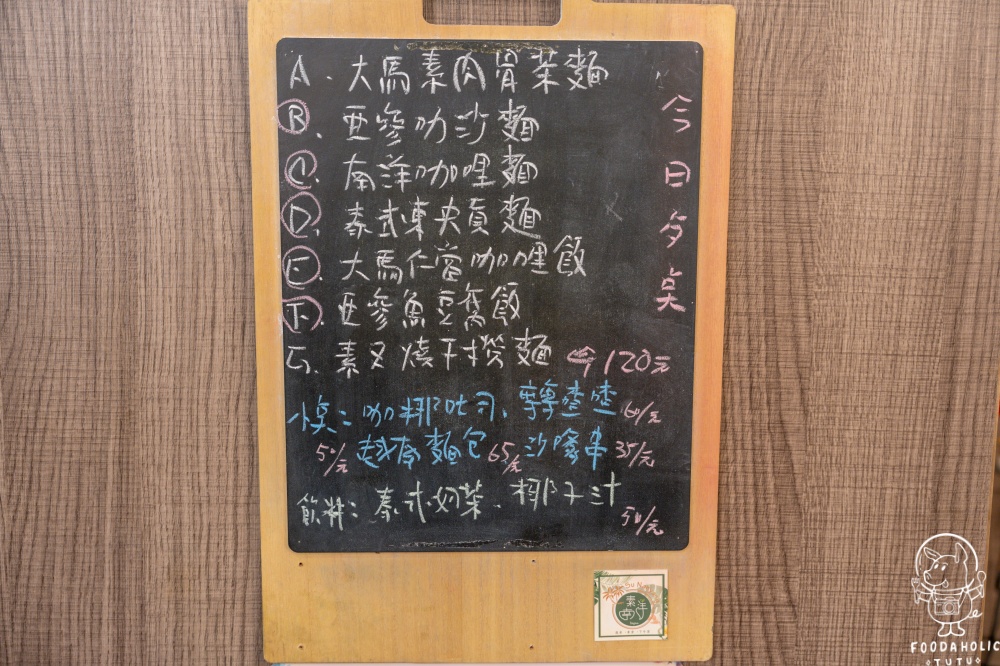 A. 大馬素肉骨茶麵
B. 亚參叻沙麵
C. 南洋咖哩麵
D. 泰式東央貢麵
E. 大馬仁當咖哩飯
F. 亚參魚豆腐飯
G. 素叉燒干撈麵 120元
小点: 咖椰吐司、喳喳 60/元
50/元 越南麵包 65/元 沙嗲串 35/元
飲料: 泰式奶茶、椰子汁 50/元
今日
FOODAHOLIC
TUTU